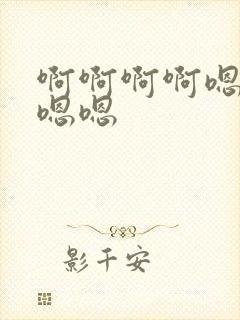 啊啊啊啊嗯
嗯嗯
影千安